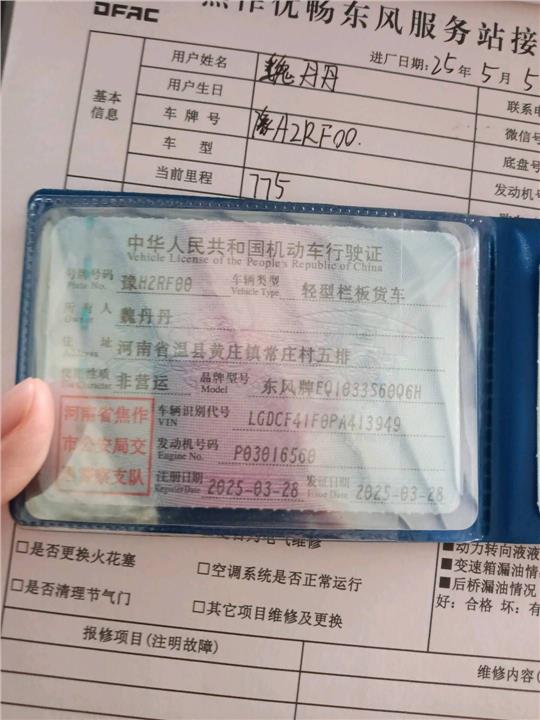 DFAC
焦作优畅东风服务站接
进厂日期:25年5月5
基本信息
用户姓名 魏丹丹
用户生日
车牌号 豫H2RF00.
车型
当前里程 775
联系电
微信号
底盘号
发动机号
中华人民共和国机动车行驶证
Vehicle License of the People's Republic of China
号牌号码 豫H2RF00 车辆类型 轻型栏板货车
Plate No. Vehicle Type
所有人 魏丹丹
Owner
住址 河南省温县黄庄镇常庄村五排
Address
使用性质 非营运 品牌型号 东风牌EQ1033S60Q6H
Use Character Model
河南省焦作市公安局交通警察支队
车辆识别代号 LGDCF41F0PA413949
VIN
发动机号码 P03016560
Engine No.
注册日期 2025-03-28 发证日期 2025-03-28
Register Date Issue Date
□是否更换火花塞
□空调系统是否正常运行
□是否清理节气门
□其它项目维修及更换
■动力转向液液
■变速箱漏油情
■后桥漏油情况
好：合格 坏：有
报修项目(注明故障)
维修内容(